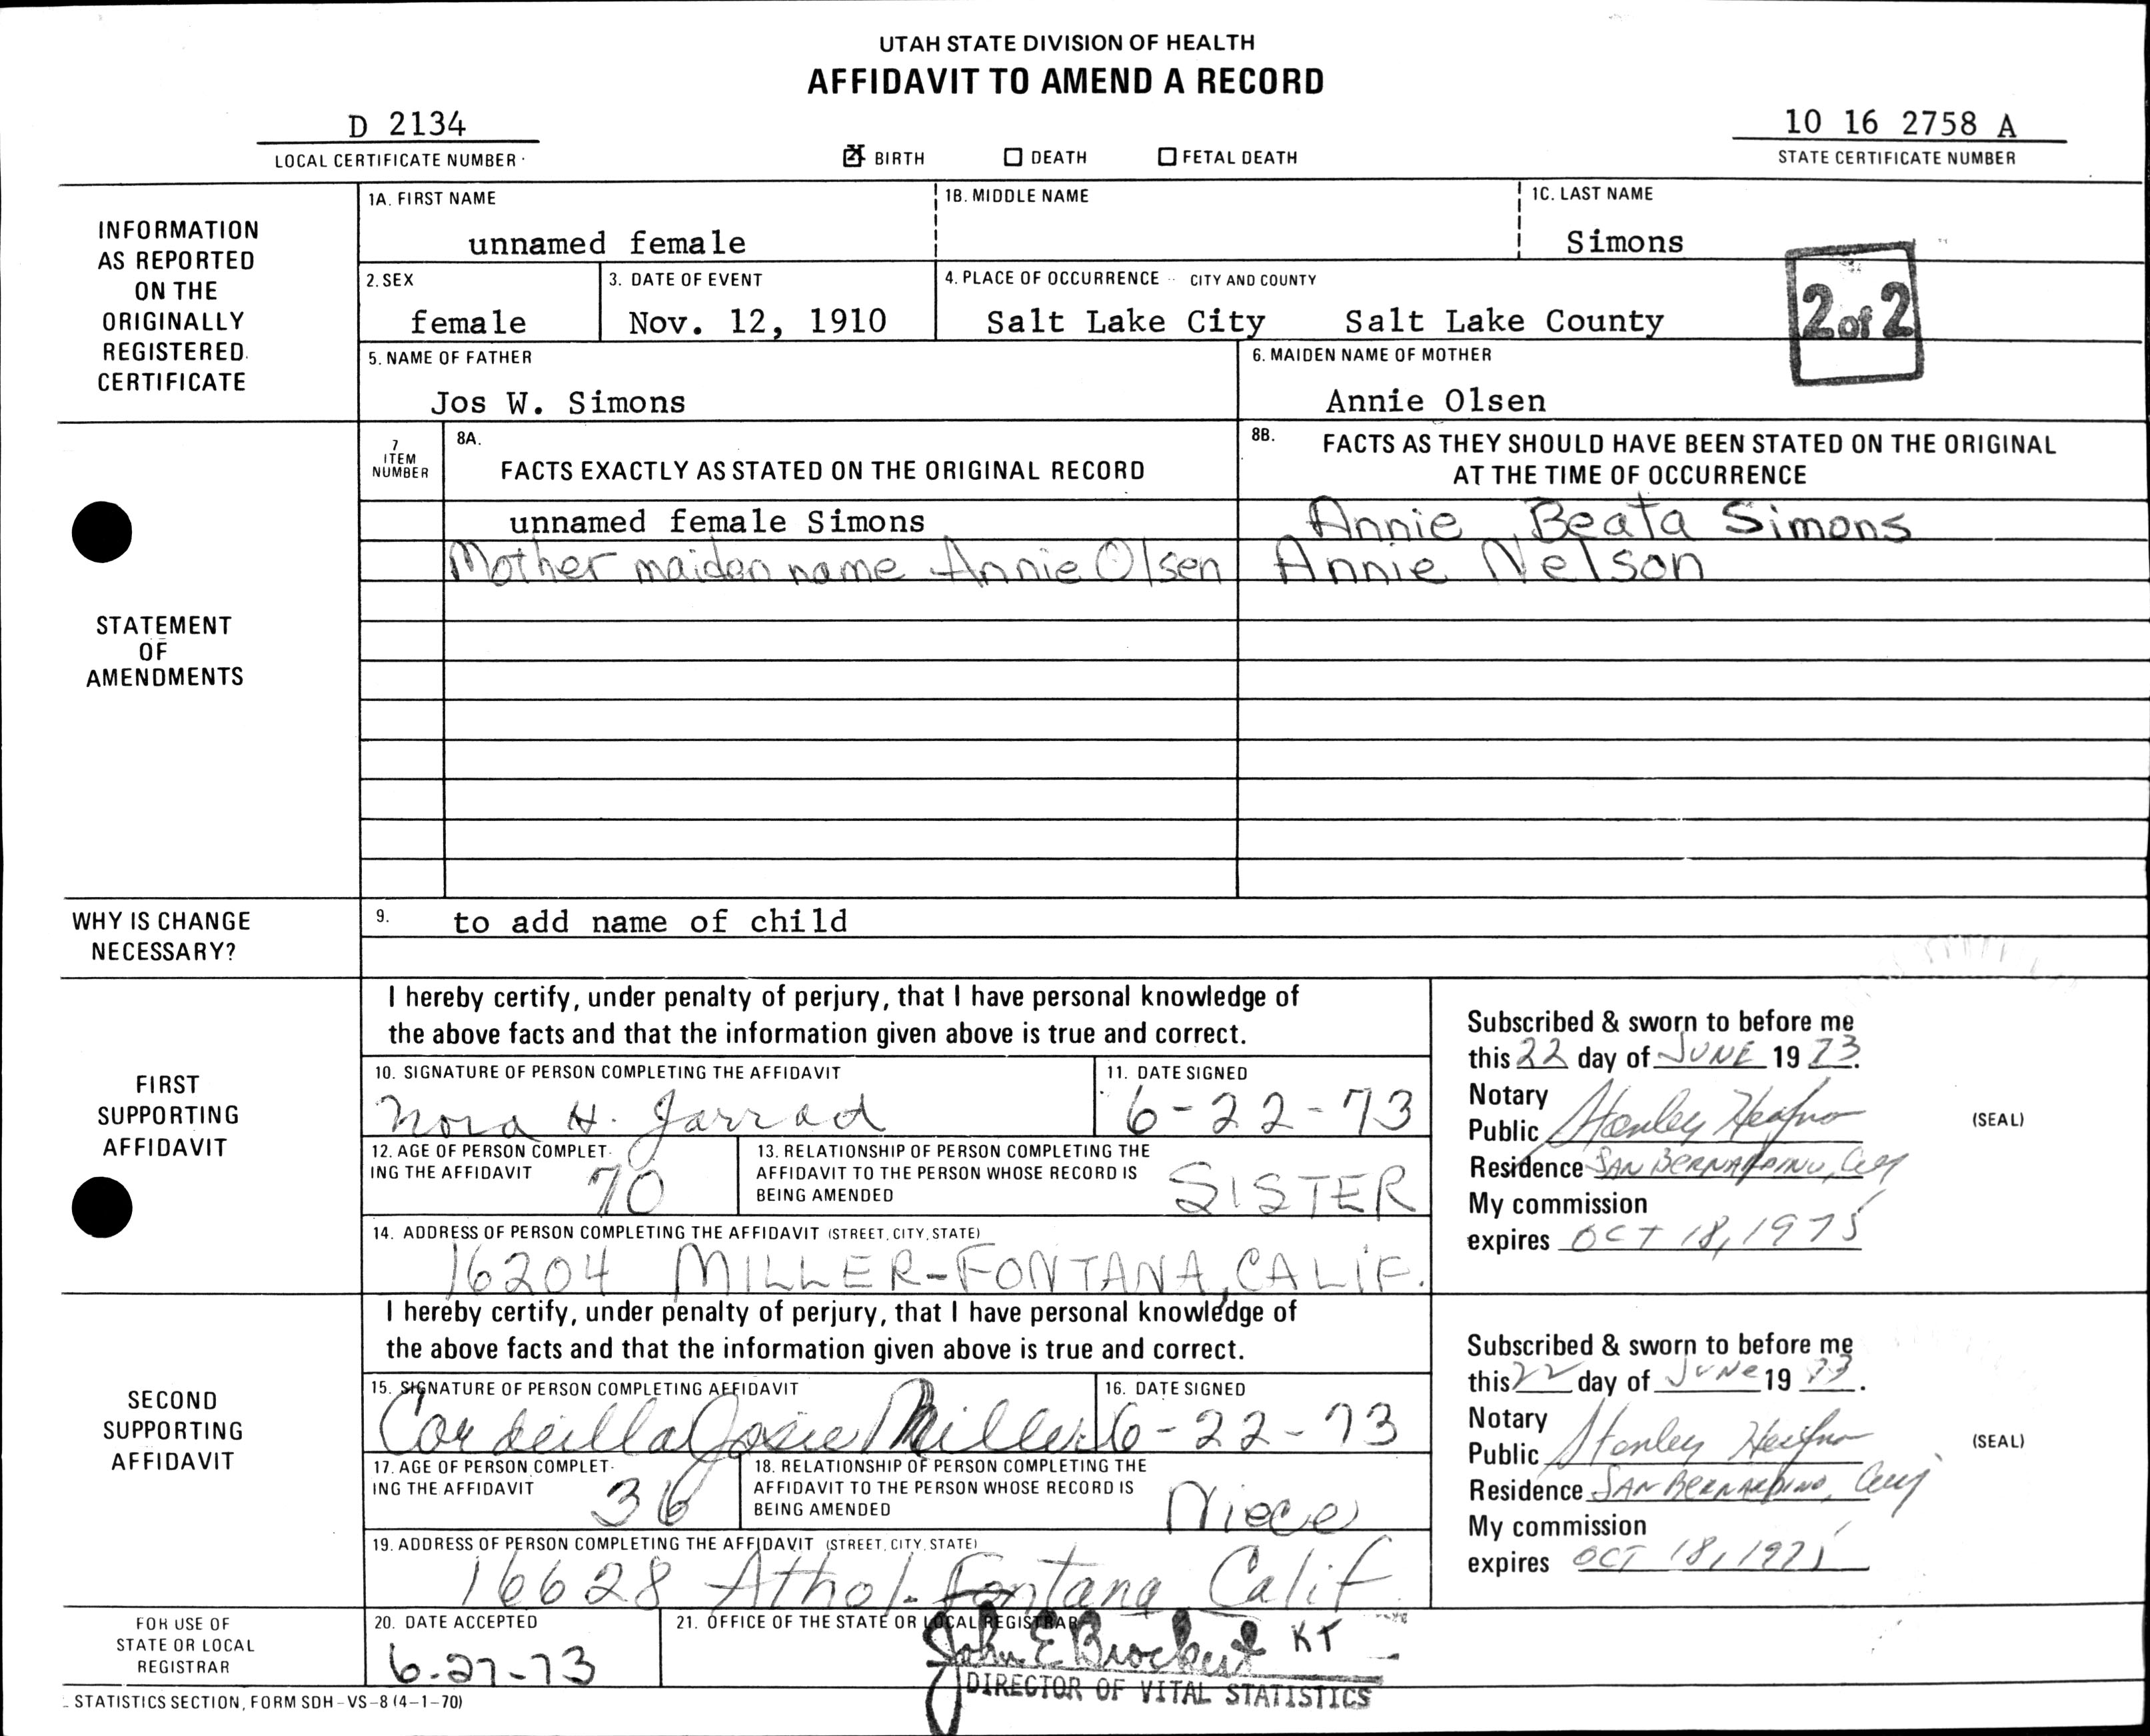 UTAH STATE DIVISION OF HEALTH
AFFIDAVIT TO AMEND A RECORD
D 2134
10 16 2758 A
LOCAL CERTIFICATE NUMBER
BIRTH
DEATH
FETAL DEATH
STATE CERTIFICATE NUMBER
INFORMATION
AS REPORTED
ON THE
ORIGINALLY
REGISTERED
CERTIFICATE
1A. FIRST NAME
unnamed female
1B. MIDDLE NAME
1C. LAST NAME
Simons
2. SEX
female
3. DATE OF EVENT
Nov. 12, 1910
4. PLACE OF OCCURRENCE - CITY AND COUNTY
Salt Lake City Salt Lake County
2 of 2
5. NAME OF FATHER
Jos W. Simons
6. MAIDEN NAME OF MOTHER
Annie Olsen
STATEMENT
OF
AMENDMENTS
7
ITEM
NUMBER
8A.
FACTS EXACTLY AS STATED ON THE ORIGINAL RECORD
8B.
FACTS AS THEY SHOULD HAVE BEEN STATED ON THE ORIGINAL
AT THE TIME OF OCCURRENCE
unnamed female Simons
Annie Beata Simons
Mother maiden name Annie Olsen
Annie Nelson
WHY IS CHANGE
NECESSARY?
9.
to add name of child
FIRST
SUPPORTING
AFFIDAVIT
I hereby certify, under penalty of perjury, that I have personal knowledge of
the above facts and that the information given above is true and correct.
10. SIGNATURE OF PERSON COMPLETING THE AFFIDAVIT
Nora H. Jarrad
11. DATE SIGNED
6-22-73
12. AGE OF PERSON COMPLET-
ING THE AFFIDAVIT
70
13. RELATIONSHIP OF PERSON COMPLETING THE
AFFIDAVIT TO THE PERSON WHOSE RECORD IS
BEING AMENDED
SISTER
14. ADDRESS OF PERSON COMPLETING THE AFFIDAVIT (STREET, CITY, STATE)
16204 MILLER-FONTANA, CALIF.
Subscribed & sworn to before me
this 22 day of JUNE 19 73.
Notary
Public Stanley
(SEAL)
Residence SAN BERNARDINO,
My commission
expires OCT 18, 1975
SECOND
SUPPORTING
AFFIDAVIT
I hereby certify, under penalty of perjury, that I have personal knowledge of
the above facts and that the information given above is true and correct.
15. SIGNATURE OF PERSON COMPLETING AFFIDAVIT
Josie Miller
16. DATE SIGNED
6-22-73
17. AGE OF PERSON COMPLET-
ING THE AFFIDAVIT
36
18. RELATIONSHIP OF PERSON COMPLETING THE
AFFIDAVIT TO THE PERSON WHOSE RECORD IS
BEING AMENDED
Niece
19. ADDRESS OF PERSON COMPLETING THE AFFIDAVIT (STREET, CITY, STATE)
16628 Athol- Fontana Calif
Subscribed & sworn to before me
this 22 day of JUNE 19 73.
Notary
Public Stanley
(SEAL)
Residence SAN BERNARDINO,
My commission
expires OCT 18, 1975
FOR USE OF
STATE OR LOCAL
REGISTRAR
20. DATE ACCEPTED
6-27-73
21. OFFICE OF THE STATE OR LOCAL REGISTRAR
John E Brockert KT
DIRECTOR OF VITAL STATISTICS
STATISTICS SECTION, FORM SDH-VS-8 (4-1-70)